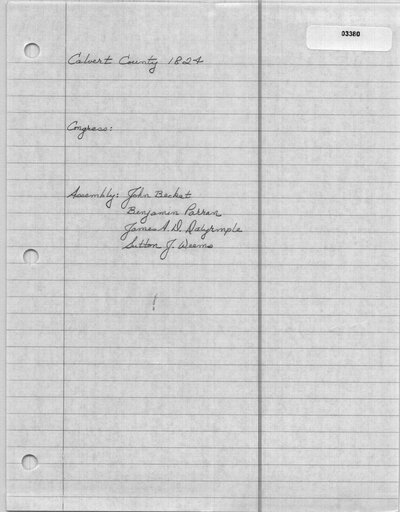 03380
Calvert County 1824
Congress:
Assembly: John Becket
Benjamin Parran
James A. D. Dalrymple
Sutton J. Weems